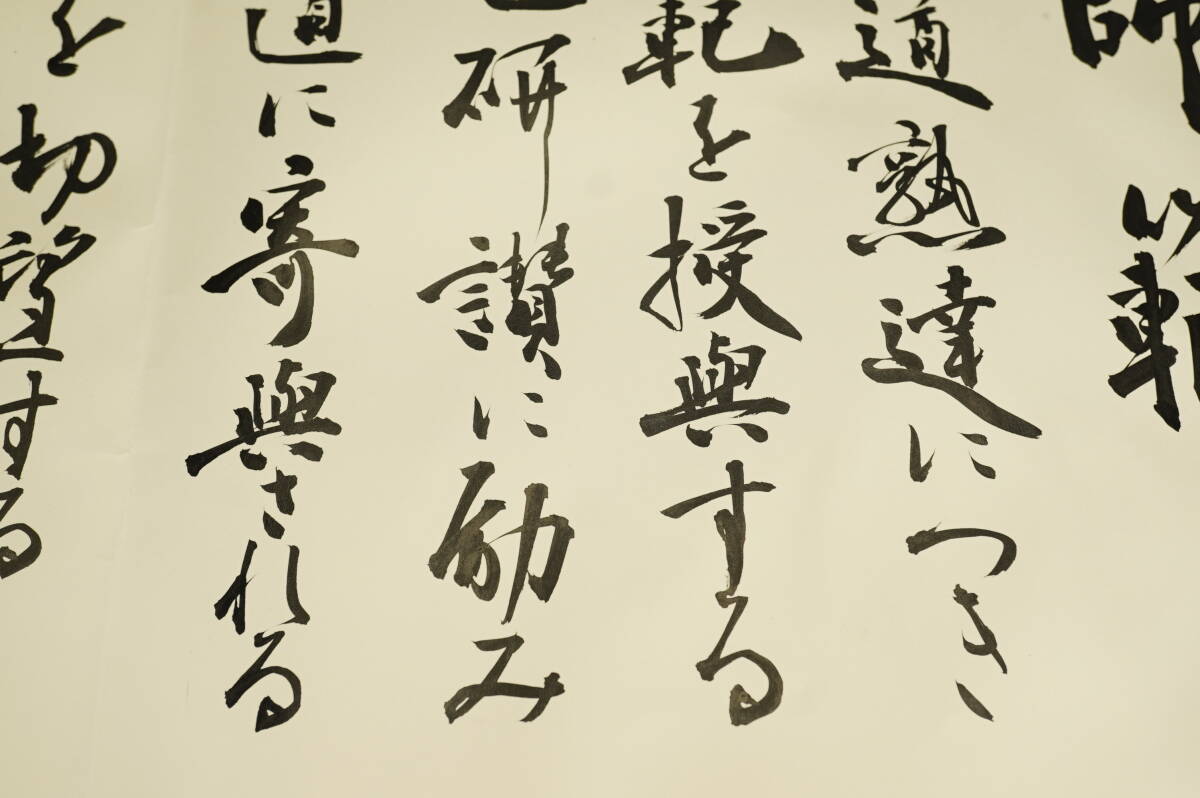 師範
道熟達につき、
範を授與する
研讃に励み
道に寄與される
を切望する